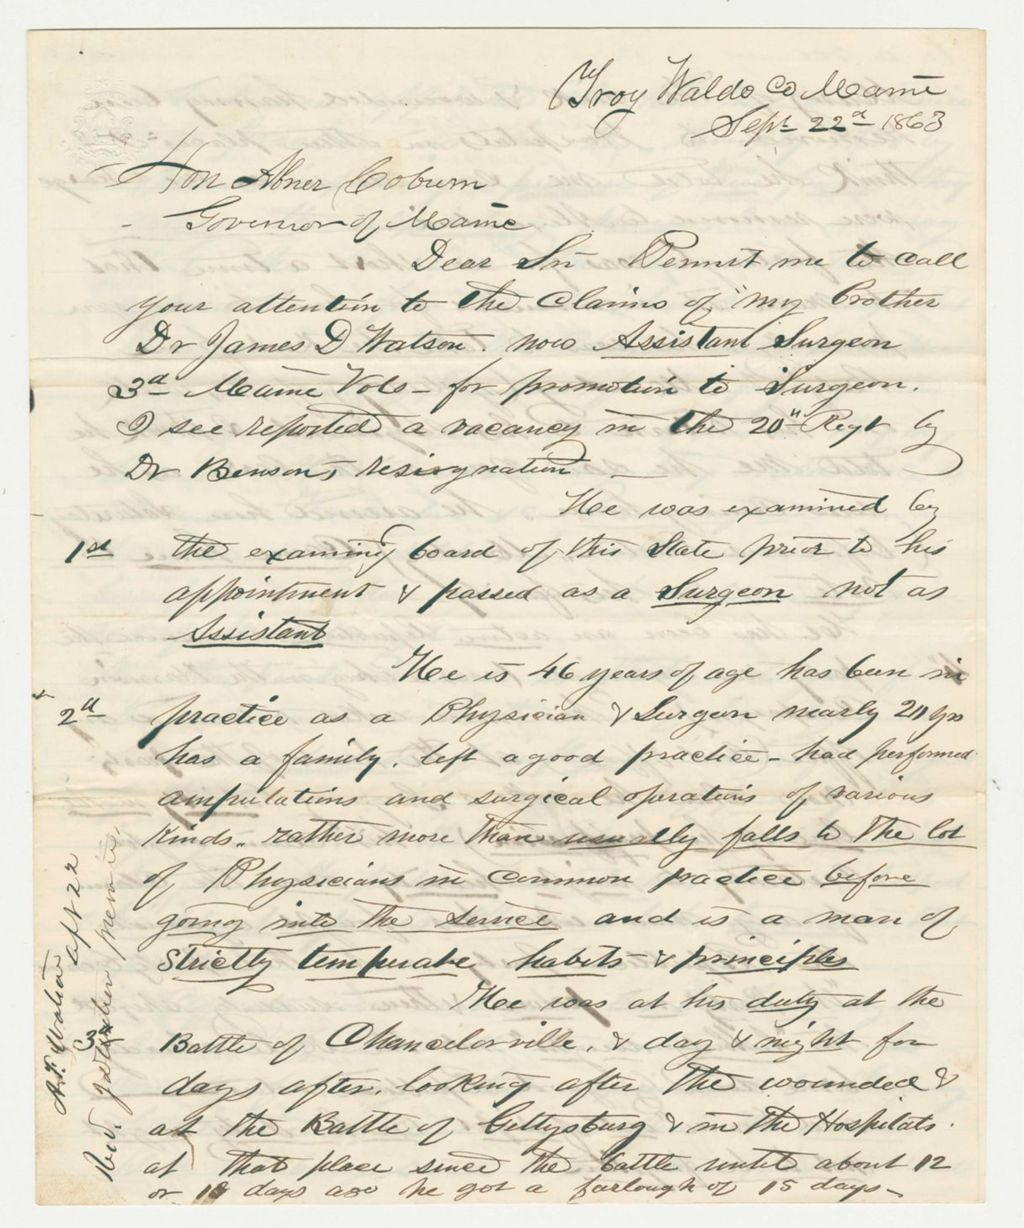 Troy Waldo Co Maine
Sept 22d 1863
Hon Abner Coburn
Governor of Maine
Dear Sir Permit me to call
your attention to the Claims of my brother
Dr James D Watson. now Assistant Surgeon
3d Maine Vols - for promotion to Surgeon.
I see reported a vacancy in the 20th Regt by
Dr Bensons resignation
He was examined by
1st the examing board of this State prior to his
appointment & passed as a Surgeon not as
Assistant
He is 46 years of age has been in
2d practice as a Physician & Surgeon nearly 20 yrs
has a family. left a good practice - had performed
amputations and surgical operations of various
kinds. rather more than usually falls to the lot
of Physicians in common practice before
going into the service and is a man of
strictly temperate habits & principles
He was at his duty at the
3d Battle of Chancelorville, & day & night for
days after, looking after the wounded &
at the Battle of Gettysburg & in the Hospitals.
at that place since the battle until about 12
or 15 days ago he got a farlough of 15 days -
A.F. Watson Sept 22
Recd.